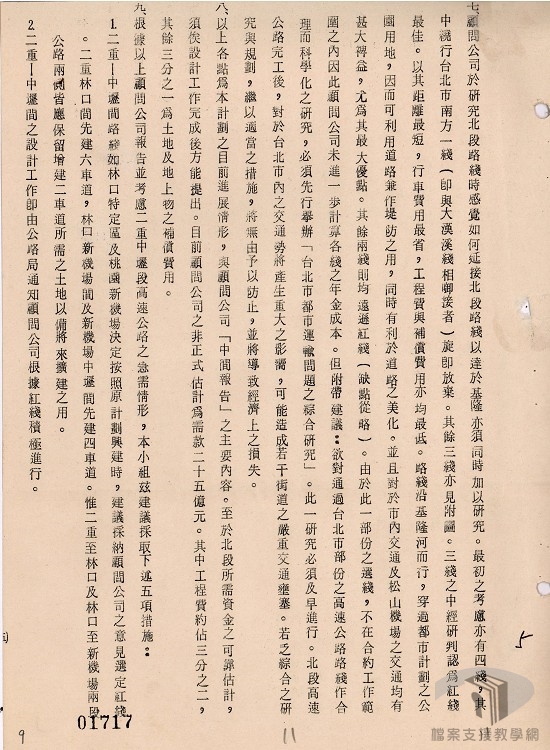 七顧問公司於研究北段路綫時感覺如何延接北段路綫以達於基隆亦須同時加以研究。最初之考慮亦有四綫，其
中繞行台北市南方一綫（即與大漢溪綫相啣接者）旋即放棄。其餘三綫亦見附圖。三綫之中經研判認為紅綫
最佳。以其距離最短，行車費用最省，工程費與補償費用亦均最低。路綫沿基隆河而行，穿過都市計劃之公
園用地，因而可利用道路兼作堤防之用，同時有利於道路之美化。並且對於市內交通及松山機場之交通均有
甚大裨益，尤為其最大優點。其餘兩綫則均遠遜紅綫（缺點從略）。由於此一部份之選綫，不在合約工作範
圍之內因此顧問公司未進一步計算各綫之年金成本。但附帶建議：欲對通過台北市部份之高速公路路綫作合
理而科學化之研究，必須先行舉辦「台北市都市運輸問題之綜合研究」。此一研究必須及早進行。北段高速
公路完工後，對於台北市內之交通勢將產生重大之影響，可能造成若干街道之嚴重交通壅塞。若乏綜合之研
究與規劃，繼以適當之措施，將無由予以防止，並將導致經濟上之損失。
八、以上各點為本計劃之目前進展情形，與顧問公司「中間報告」之主要內容。至於北段所需資金之可靠估計，
須俟設計工作完成後方能提出。目前顧問公司之非正式估計為需款二十五億元。其中工程費約佔三分之二，
其餘三分之一為土地及地上物之補償費用。
九、根據以上顧問公司報告並考慮二重中壢段高速公路之急需情形，本小組茲建議採取下述五項措施：
1.二重—中壢間路綫如林口特定區及桃園新機場決定按照原計劃興建時，建議採納顧問公司之意見選定紅綫
。二重林口間先建六車道，林口新機場間及新機場中壢間先建四車道。惟二重至林口及林口至新機場兩段
公路兩側皆應保留增建二車道所需之土地以備將來擴建之用。
2.二重—中壢間之設計工作即由公路局通知顧問公司根據紅綫積極進行。
5
9
01717
11
檔案支援教學網